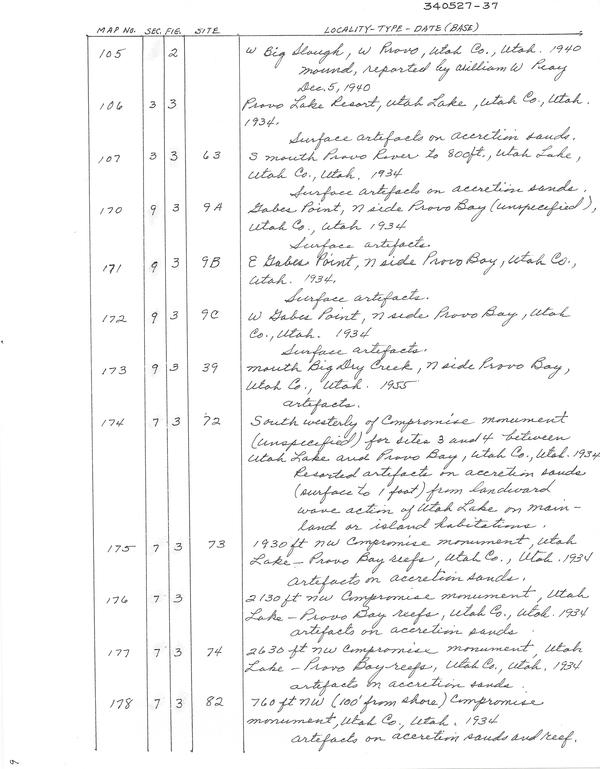 340527-37
MAP NO. SEC. FIG. SITE LOCALITY-TYPE-DATE (BASE)
105 2 W Big Slough, W Provo, Utah Co., Utah. 1940
mound, reported by William W Peay
Dec. 5, 1940
106 3 3 Provo Lake Resort, Utah Lake, Utah Co., Utah.
1934.
Surface artefacts on accretion sands.
107 3 3 63 S mouth Provo River to 800ft., Utah Lake,
Utah Co., Utah. 1934
Surface artefacts on accretion sands.
170 9 3 9A Gabes Point, N side Provo Bay (unspecified),
Utah Co., Utah 1934
Surface artefacts.
171 9 3 9B E Gabes Point, N side Provo Bay, Utah Co.,
Utah. 1934.
Surface artefacts.
172 9 3 9C W Gabes Point, N side Provo Bay, Utah
Co., Utah. 1934
Surface artefacts.
173 9 3 39 mouth Big Dry Creek, N side Provo Bay,
Utah Co., Utah. 1955
artefacts.
174 7 3 72 South westerly of Compromise monument
(unspecified) for sites 3 and 4 between
Utah Lake and Provo Bay, Utah Co., Utah. 1934
Resorted artefacts on accretion sands
(surface to 1 foot) from landward
wave action of Utah Lake on main-
land or island habitations.
175 7 3 73 1930 ft NW Compromise monument, Utah
Lake - Provo Bay reefs, Utah Co., Utah. 1934
artefacts on accretion sands.
176 7 3 2130 ft NW Compromise monument, Utah
Lake - Provo Bay reefs, Utah Co., Utah. 1934
artefacts on accretion sands.
177 7 3 74 2630 ft NW Compromise monument, Utah
Lake - Provo Bay reefs, Utah Co., Utah. 1934
artefacts on accretion sands.
178 7 3 82 760 ft NW (100' from shore) Compromise
monument, Utah Co., Utah. 1934
artefacts on accretion sands and reef.
9